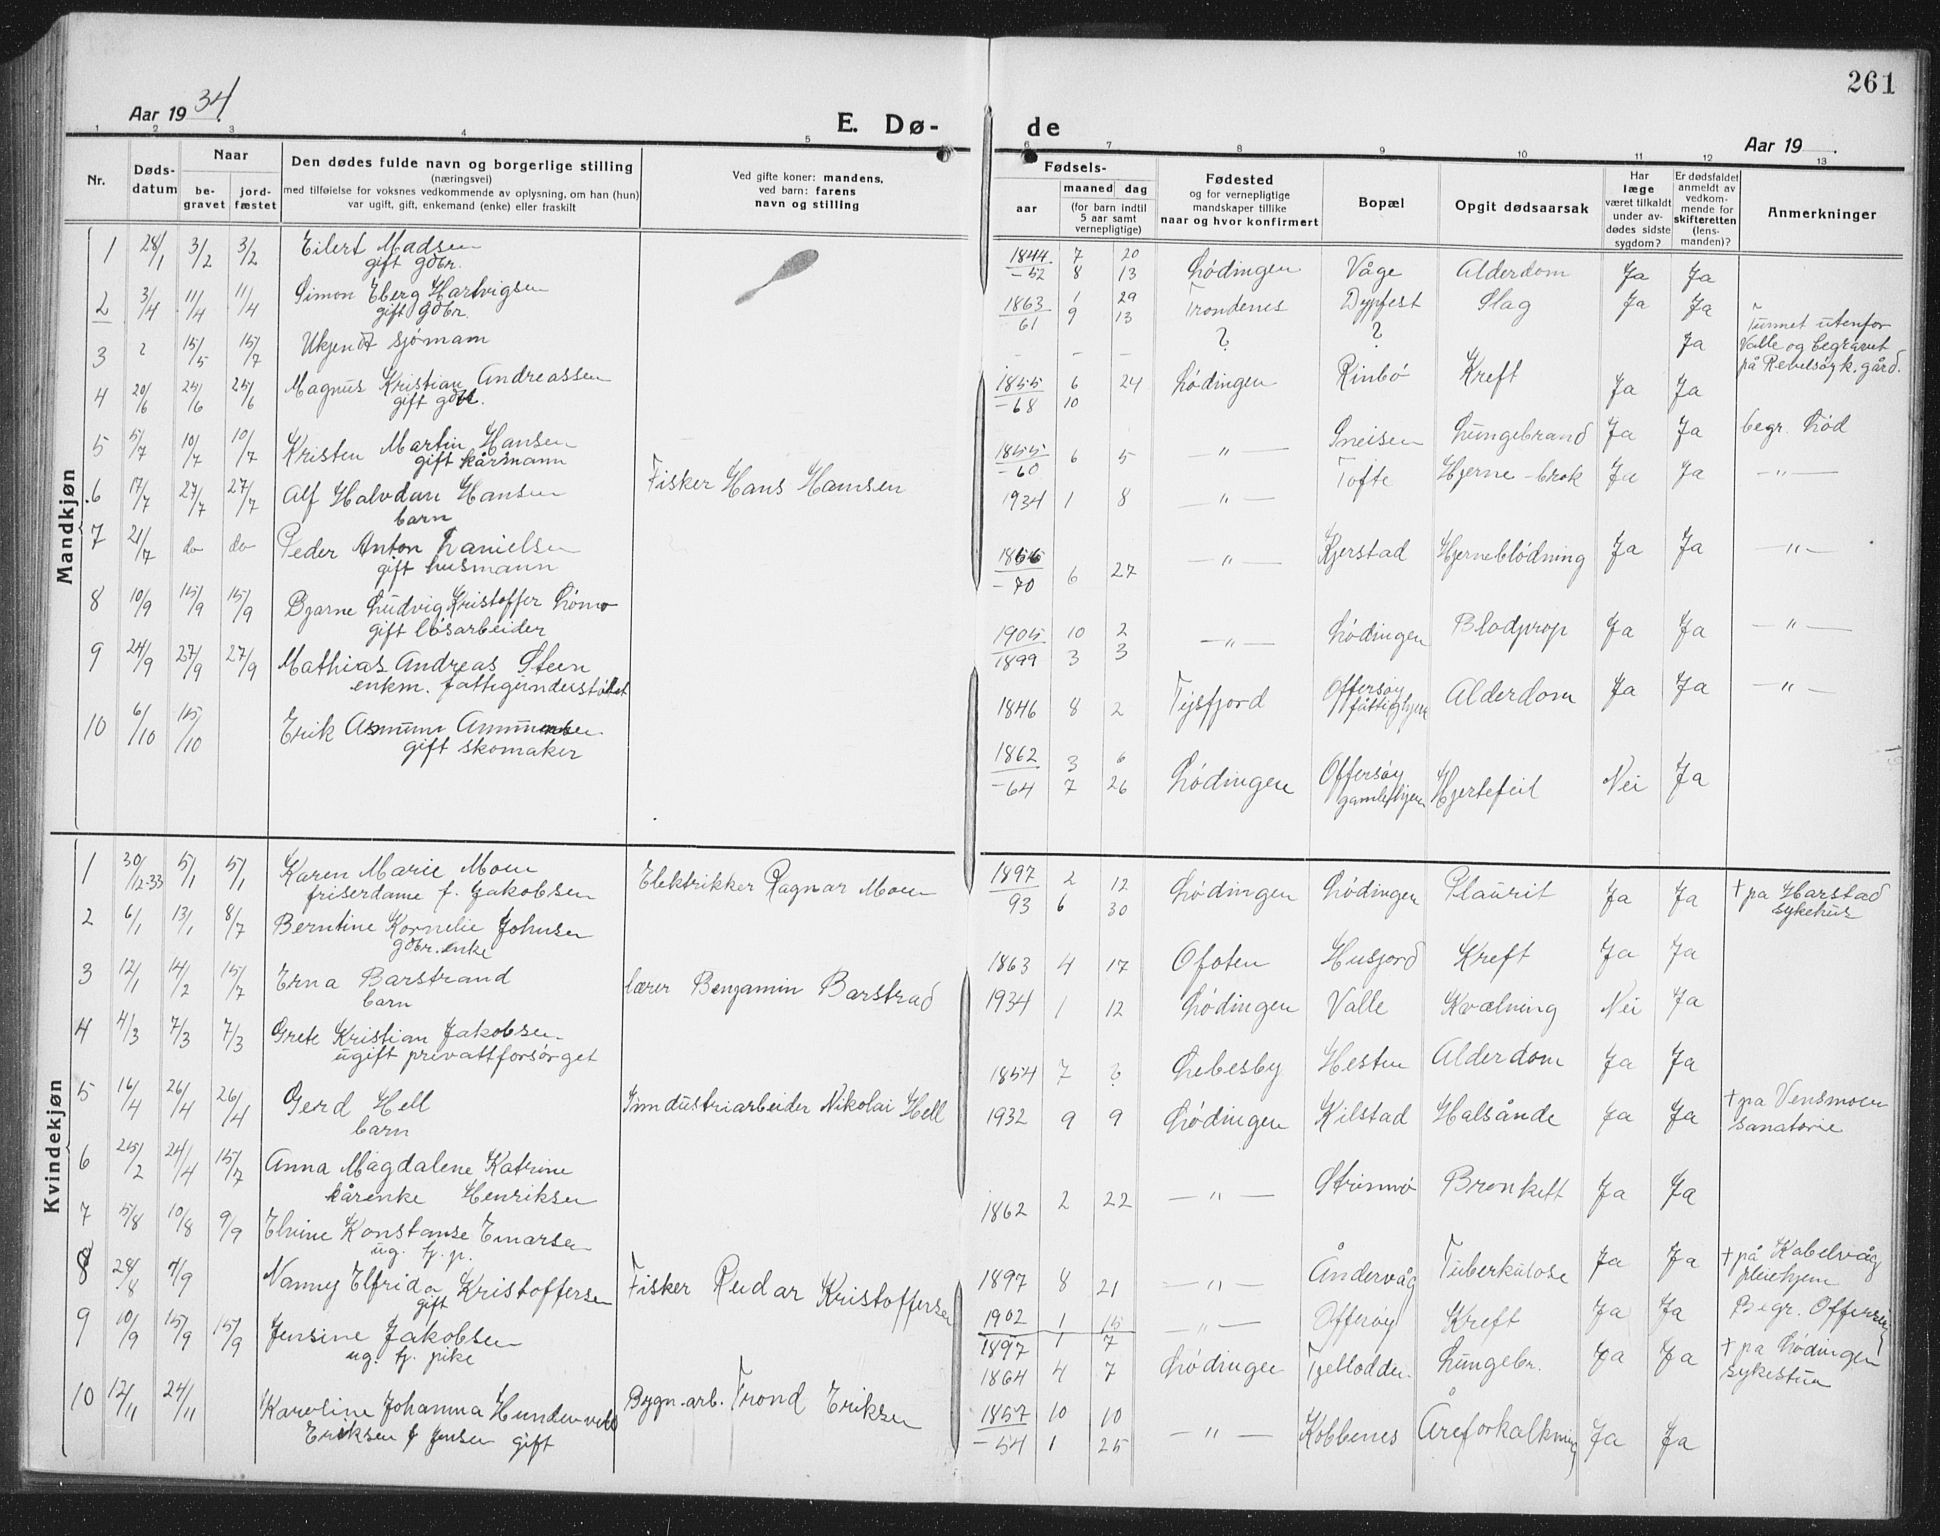 261
Aar 19 34
E. Dø-
de
Aar 19
1 2 3 4 5 6 7 8 9 10 11 12 13
Nr.
Døds-
datum
Naar
be-
gravet
jord-
fæstet
Den dødes fulde navn og borgerlige stilling
(næringsvei)
med tilføielse for voksnes vedkommende av oplysning, om han (hun)
var ugift, gift, enkemand (enke) eller fraskilt
Ved gifte koner: mandens,
ved barn: farens
navn og stilling
Fødsels-
aar
maaned dag
(for barn indtil
5 aar samt
vernepligtige)
Fødested
og for vernepligtige
mandskaper tillike
naar og hvor konfirmert
Bopæl
Opgit dødsaarsak
Har
læge
været tilkaldt
under av-
dødes sidste
sygdom?
Er dødsfaldet
anmeldt av
vedkom-
mende for
skifteretten
(lens-
manden)?
Anmerkninger
Mandkjøn
1 28/1 3/2 3/2 Eilert Madsen 1844 7 20 Lødingen Våge Alderdom Ja Ja
gift gdbr. -52 8 13
2 3/4 11/4 11/4 Simon Eberg Hartvigsen 1863 1 29 Trondenes Dypfest Slag Ja Ja
gift gdbr. -61 9 13
3 ? 15/5 15/7 Ukjendt sjømann - - - ? ? Ja Funnet utenfor
Valle og begravet
på Revelsøy k. gård.
4 20/6 25/6 25/6 Magnus Kristian Andreassen 1855 6 24 Lødingen Rinbø Kreft Ja Ja
gift gdbr. -68 10
5 5/7 10/7 10/7 Kristen Martin Hansen 1855 6 5 -"- Sneisen Lungebrand Ja Ja begr. Lød
gift kårmann -60
6 17/7 27/7 27/7 Alf Halvdan Hansen Fisker Hans Hansen 1934 1 8 -"- Tofte Hjerne-brok Ja Ja -"-
barn
7 21/7 do do Peder Anton Danielsen 1856 6 27 -"- Kjerstad Hjerneblødning Ja Ja -"-
gift husmann -70
8 10/9 15/9 15/9 Bjarne Ludvig Kristoffer Lømo 1905 10 2 -"- Lødingen Blodprop Ja Ja -"-
gift løsarbeider 1899 3 3
9 24/9 27/9 27/9 Mathias Andreas Steen 1846 8 2 Tysfjord Offersøy Alderdom Ja Ja -"-
enkm. fattigunderstøttet fattighjem
10 6/10 15/10 Erik Asmunn 1862 3 6 Lødingen Offersøy Hjertefeil Nei Ja
gift skomaker -64 7 26 gamlehjem
Kvindekjøn
1 30/12-33 5/1 5/1 Karen Marie Moen Elektrikker Ragnar Moen 1897 2 12 Lødingen Lødingen Plaurit Ja Ja + pa Harstad
friserdame f. Jakobsen 93 6 30 sykehus
2 6/1 13/1 8/7 Berntine Kornelie Johnsen 1863 4 17 Ofoten Husjord Kreft Ja Ja
gdbr. enke
3 12/1 14/2 15/7 Erna Barstrand lærer Benjamin Barstrad 1934 1 12 Lødingen Valle Kvælning Nei Ja
barn
4 4/3 7/3 7/3 Grete Kristian Jakobsen 1854 7 ? Lebesby Hesten Alderdom Ja Ja
ugift privattforsørget
5 16/4 26/4 26/4 Gerd Hell Inndustriarbeider Nikolai Hell 1932 9 9 Lødingen Kilstad Halsånde Ja Ja + pa Vensmoen
barn sanatorie
6 25/2 24/4 15/7 Anna Magdalene Katrine 1862 2 22 -"- Strømnø Bronkett Ja Ja
kårenke Henriksen
7 5/8 10/8 9/9 Elvine Konstanse Einarsen 1897 8 21 -"- Åndervåg Tuberkulose Ja Ja + på Kabelvåg
ug. tj. p. pleiehjem
8 28/8 7/9 Nanny Elfrida Kristoffersen Fisker Reidar Kristoffersen 1902 1 15 -"- Offersøy Kreft Ja Ja Begr. Offersøy
gift 1897 1 7
9 10/9 15/9 15/9 Jensine Jakobsen 1864 4 7 Lødingen Tjellodden Lungebr. Ja Ja + pa Lødingen
ug. tj. pike sykestua
10 12/11 24/11 Karoline Johanna Bygn.-arb. Trond Eriksen 1857 10 10 -"- Kobbenes Åreforkalkning Ja Ja
Eriksen f Jensen gift -54 1 25